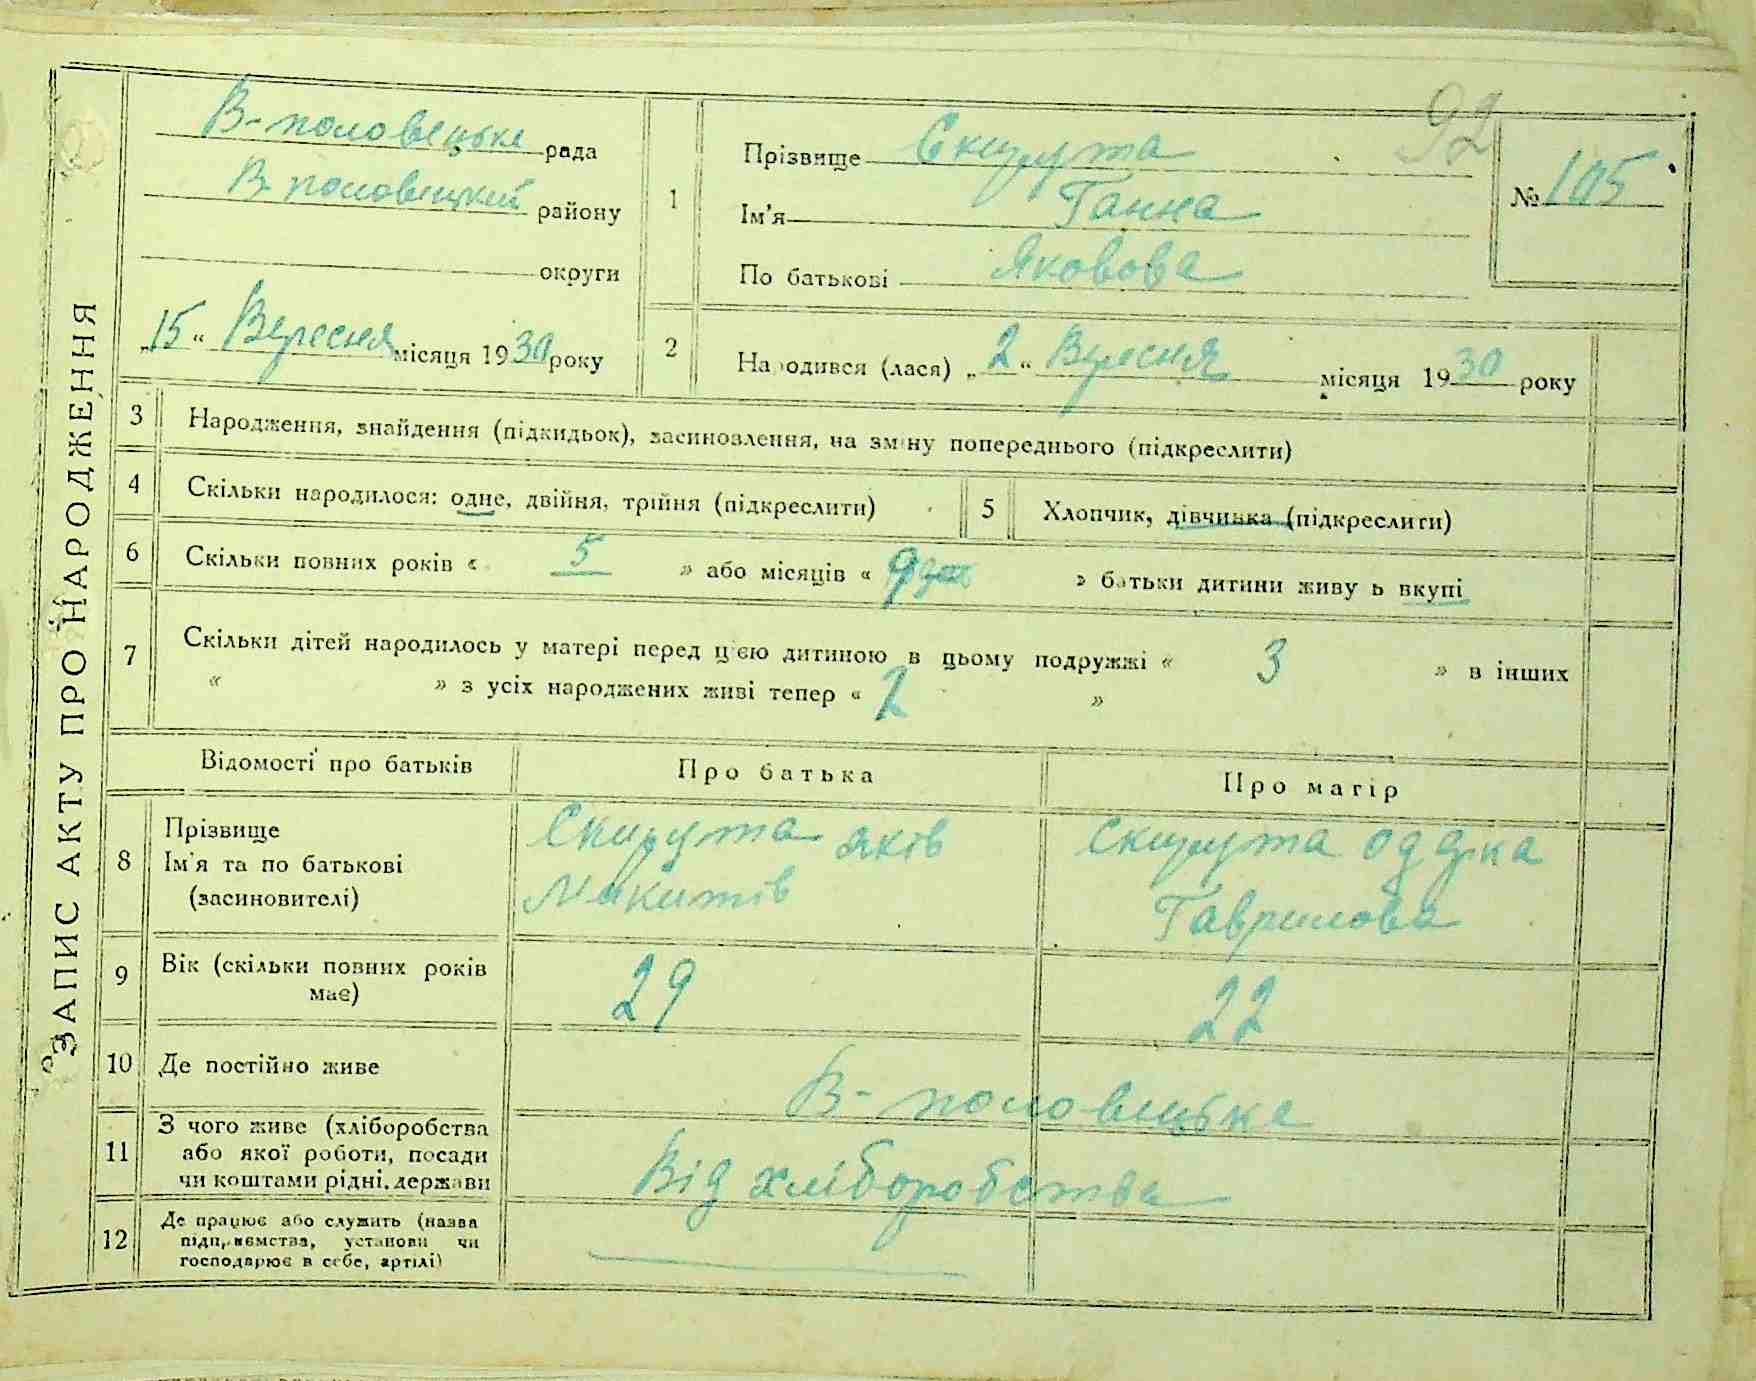 ЗАПИС АКТУ ПРО НАРОДЖЕННЯ
92
В-половецьке рада
В половецкий району
округи
„15“ Вересня місяця 1930 року
1
Прізвище Скирута
Ім'я Ганна
По батькові Яковова
№ 105
2
Народився (лася) „2“ Вересня місяця 1930 року
3 Народження, знайдення (підкидьок), засиновлення, на зміну попереднього (підкреслити)
4 Скільки народилося: одне, двійня, трійня (підкреслити)
5 Хлопчик, дівчинка (підкреслити)
6 Скільки повних років « 5 » або місяців « » батьки дитини живу ь вкупі
7 Скільки дітей народилось у матері перед цією дитиною в цьому подружжі « 3 » в інших
« » з усіх народжених живі тепер « 2 »
Відомості про батьків Про батька Про матір
8 Прізвище
Ім'я та по батькові
(засиновителі)
Скирута яків
Микитів
Скирута одарка
Гаврилова
9 Вік (скільки повних років
має)
29 22
10 Де постійно живе
В-половецьке
11 З чого живе (хліборобства
або якої роботи, посади
чи коштами рідні, держави
Від хліборобства
12 Де працює або служить (назва
підприємства, установи чи
господарює в себе, артілі)